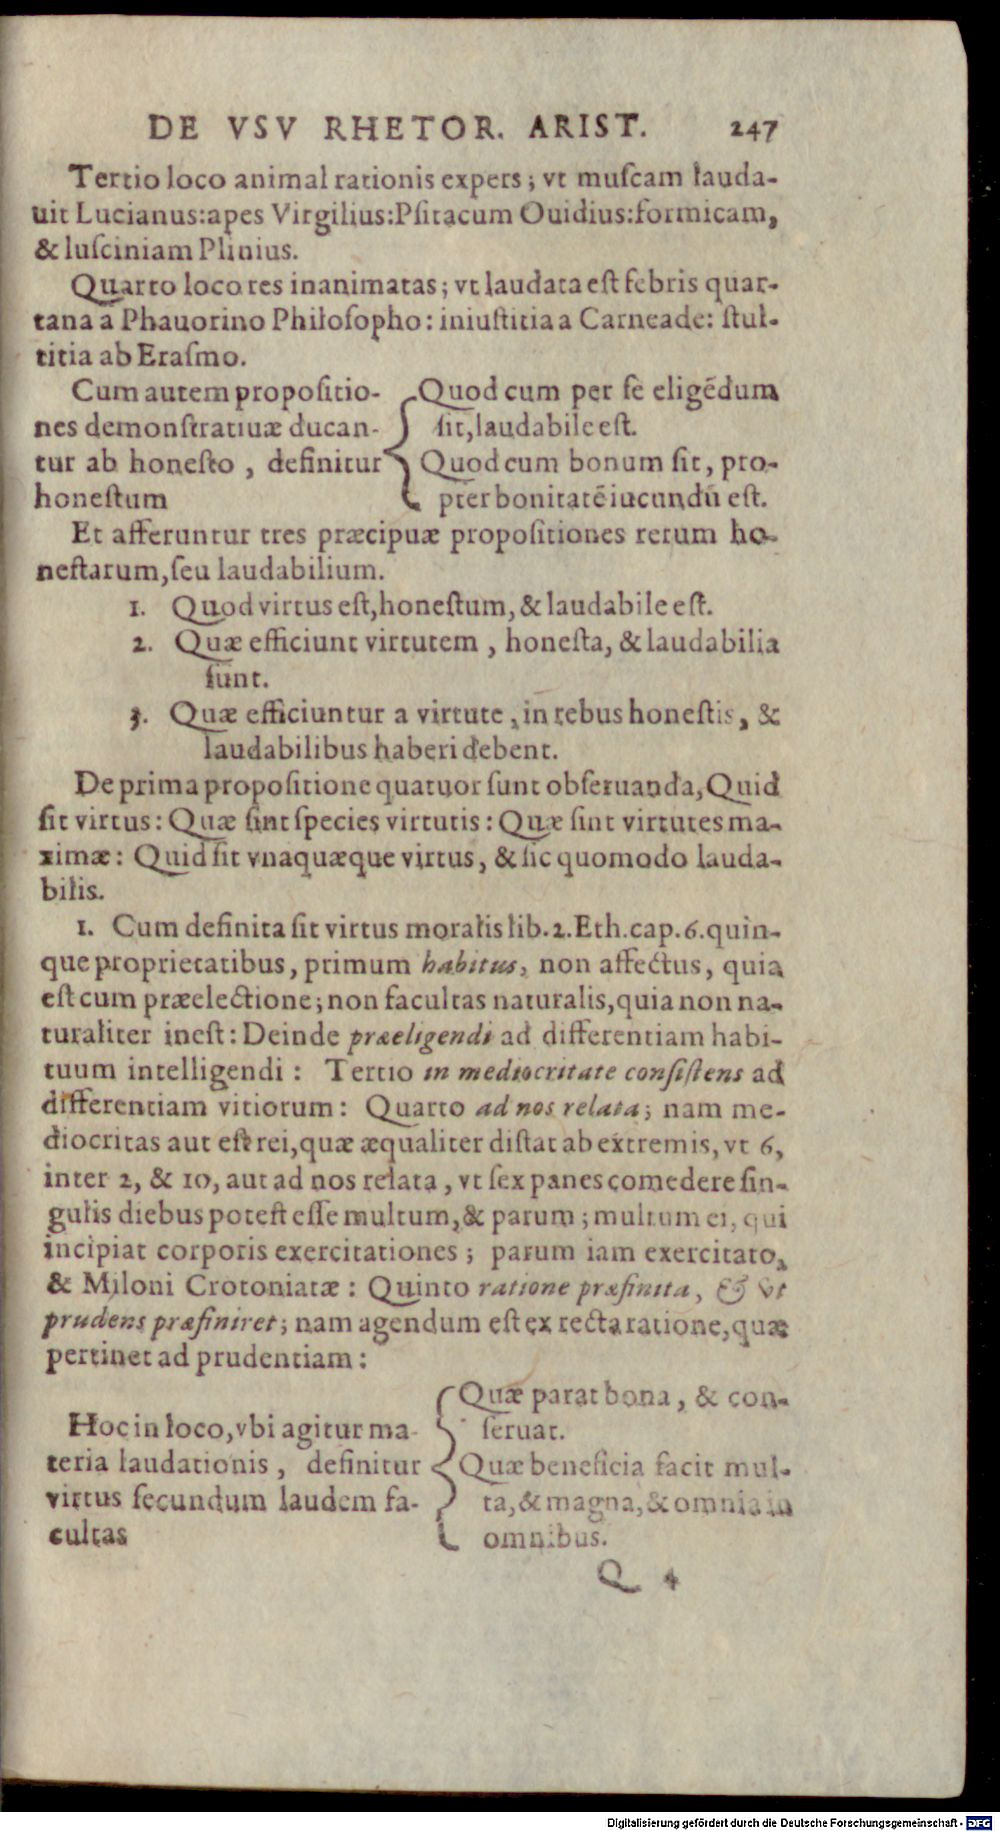 DE VSV RHETOR. ARIST. 247
Tertio loco animal rationis expers; vt muſcam lauda-
uit Lucianus:apes Virgilius:Pſitacum Ouidius:formicam,
& luſciniam Plinius.
Quarto loco res inanimatas; vt laudata eſt febris quar-
tana a Phauorino Philoſopho: iniuſtitia a Carneade: ſtul-
titia ab Eraſmo.
Cum autem propoſitio-
nes demonſtratiuæ ducan-
tur ab honeſto, definitur
honeſtum
Quod cum per ſe eligēdum
ſit, laudabile eſt.
Quod cum bonum ſit, pro-
pter bonitatē iucundū eſt.
Et afferuntur tres præcipuæ propoſitiones rerum ho-
neſtarum, ſeu laudabilium.
1. Quod virtus eſt, honeſtum, & laudabile eſt.
2. Quæ efficiunt virtutem, honeſta, & laudabilia
ſunt.
3. Quæ efficiuntur a virtute, in rebus honeſtis, &
laudabilibus haberi debent.
De prima propoſitione quatuor ſunt obſeruanda, Quid
ſit virtus: Quæ ſint ſpecies virtutis: Quæ ſint virtutes ma-
ximæ: Quid ſit vnaquæque virtus, & ſic quomodo lauda-
bilis.
1. Cum definita ſit virtus moralis lib.2.Eth.cap.6.quin-
que proprietatibus, primum habitus, non affectus, quia
eſt cum præelectione; non facultas naturalis, quia non na-
turaliter ineſt: Deinde præeligendi ad differentiam habi-
tuum intelligendi: Tertio in mediocritate conſiſtens ad
differentiam vitiorum: Quarto ad nos relata; nam me-
diocritas aut eſt rei, quæ æqualiter diſtat ab extremis, vt 6,
inter 2, & 10, aut ad nos relata, vt ſex panes comedere ſin-
gulis diebus poteſt eſſe multum, & parum; multum ei, qui
incipiat corporis exercitationes; parum iam exercitato,
& Miloni Crotoniatæ: Quinto ratione præfinita, & vt
prudens præfiniret; nam agendum eſt ex recta ratione, quæ
pertinet ad prudentiam:
Hoc in loco, vbi agitur ma-
teria laudationis, definitur
virtus ſecundum laudem fa-
cultas
Quæ parat bona, & con-
ſeruat.
Quæ beneficia facit mul-
ta, & magna, & omnia in
omnibus.
Q 4
Digitalisierung gefördert durch die Deutsche Forschungsgemeinschaft - DFG